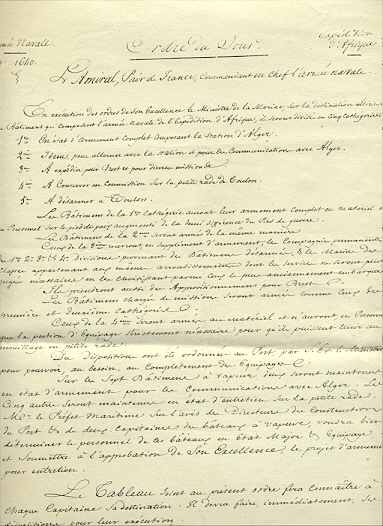 armée Navale.
Expédition
d'Afrique.
N° 1640.
Ordre du Jour.
L'Amiral, Pair de France, Commandant en Chef l'armée navale.
En exécution des ordres de son Excellence le Ministre de la Marine, sur la destination ultérieure
Bâtimens qui composent l'armée navale de l'Expédition d'Afrique, ils seront divisés en cinq cathégories
1re En état d'armement complet composant la station d'Alger.
2me Idem, pour alterner avec la station et pour les Communications avec Alger.
3e A expédier pour Brest et pour diverses missions.
4e A Conserver en Commission sur la petite rade de Toulon.
5e A désarmer à Toulon.
Les Bâtimens de la 1re Cathégorie auront leur armement complet en matériel et
Personnel sur le pied de paix augmenté de la demi différence du Pied de guerre.
Les Bâtimens de la 2me seront armés de la même manière
Ceux de la 3me recevront, en supplément d'armement, les Compagnies permanentes
des 1re 2e 3e et 4e Divisions provenant des Bâtimens désarmés, & les Marins des
Classes appartenant aux mêmes arrondissemens dont les services à terre peut
en les choisissant parmi ceux le plus anciennement embarqués
Ils prendront aussi des Approvisionnemens pour Brest.
Les Bâtimens chargés de missions seront armés comme ceux des
première et deuxième Cathégories.
Ceux de la 4me seront armés au matériel et n'auront en Personnel
que la portion d'Equipage strictement nécessaire pour qu'ils puissent tenir au
mouillage en petite rade.
Des dispositions ont été ordonnées au Port par S. Ex. le Ministre
pour pourvoir, au besoin, au Complettement des Equipages.
Sur les Sept Bâtimens à vapeur, deux seront maintenus
en état d'armement pour les Communications avec Alger: Les
Cinq autres seront maintenus en état d'entretien sur la petite rade.
Mr. le Préfet Maritime Sur l'avis des Directeurs des Constructions
du Port & de deux Capitaines de bateaux à vapeurs, voudra bien
déterminer le personnel de ces bateaux en Etat Major & Equipage
et Soumettre à l'approbation de Son Excellence, le projet d'armement
pour entretien.
Le Tableau Joint au présent ordre fera connaître à
Chaque Capitaine sa destination: Il devra faire immédiatement, ses
dispositions pour leur exécution.